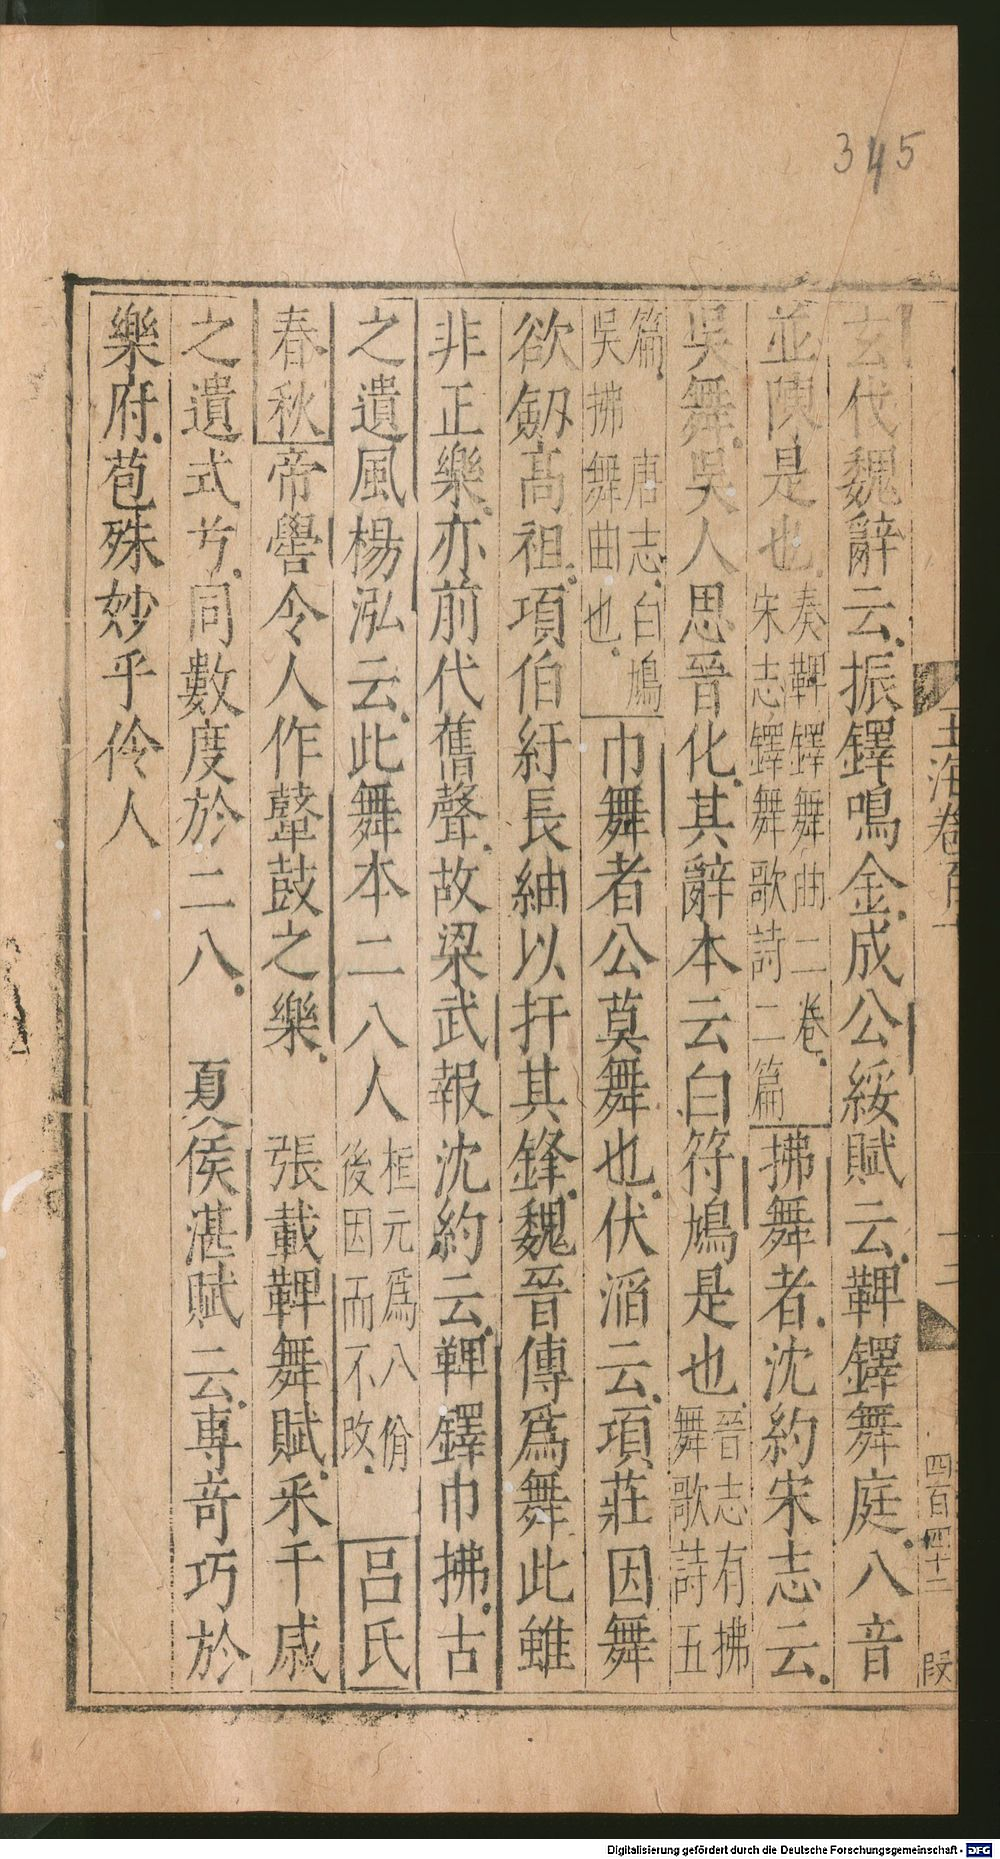 345
玄代魏辭云振鐸鳴金成公綏賦云鞞鐸舞庭八音
並陳是也奏鞞鐸舞曲二卷宋志鐸舞歌詩二篇拂舞者沈約宋志云
吳舞吳人思晉化其辭本云白符鳩是也晉志有拂舞歌詩五
篇唐志白鳩吳拂舞曲也巾舞者公莫舞也伏滔云項莊因舞
欲劔高祖項伯紆長紬以扞其鋒魏晉傳爲舞此雖
非正樂亦前代舊聲故梁武報沈約云鞞鐸巾拂古
之遺風楊泓云此舞本二八人桓元爲八佾後因而不改呂氏
春秋帝嚳令人作鼙鼓之樂 張載鞞舞賦釆千戚
之遺式兮同數度於二八 夏侯湛賦云專竒巧於
樂府苞殊妙乎伶人
玉海卷百
十二
四百四十二
段
Digitalisierung gefördert durch die Deutsche Forschungsgemeinschaft - DFG